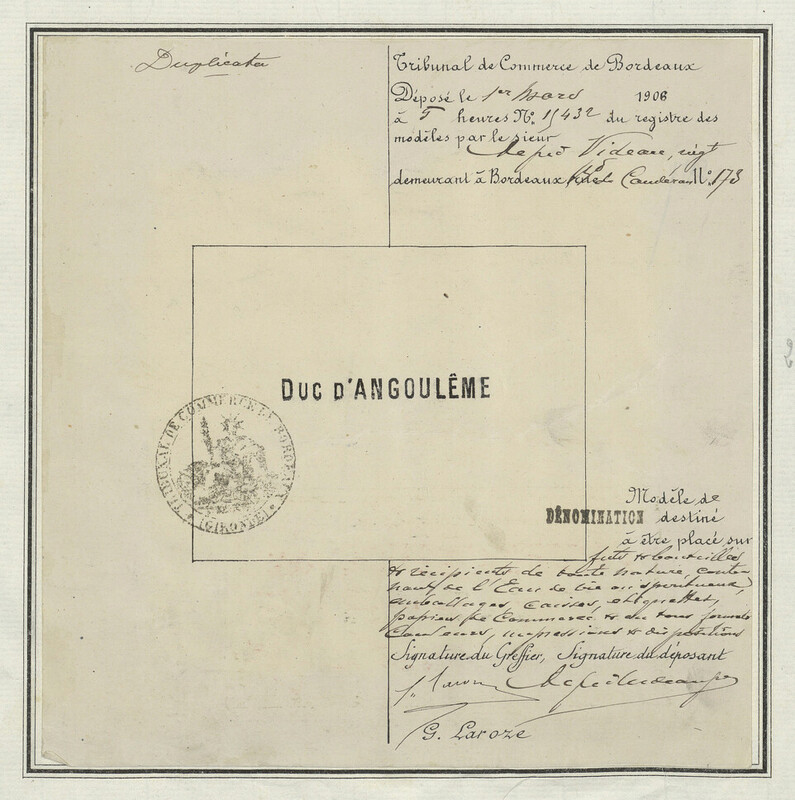 Duplicata
Tribunal de Commerce de Bordeaux
Déposé le 1er Mars 1906
à 5 heures No. 15432 du registre des
modèles par le sieur
Videau,
demeurant à Bordeaux Caudéran No. 173
DUC D'ANGOULÊME
TRIBUNAL DE COMMERCE DE BORDEAUX
(GIRONDE)
Modèle de
DÉNOMINATION destiné
à être placé sur
futs & bouteilles
& récipients de toute nature, conte-
nant de l'Eau de vie ou spiritueux,
emballages, caisses, etiquettes,
papiers de Commerce & en tous formats
Couleurs, impressions & dispositions
Signature du Greffier, Signature du déposant
G. Laroze